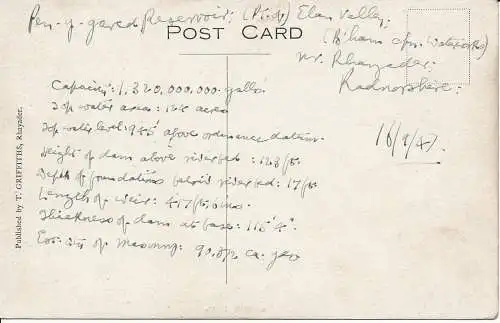 Pen-y-gared Reservoir: (Pool) Elan Valley:
(B'ham Cpn. Waterworks)
POST CARD
nr. Rhayader:
Radnorshire:
16/9/47.
Capacity: 1,320,000,000 gallo
Top water area: 124 acres
Top water level: 945' above ordnance datum
Height of dam above river bed: 123 ft.
Depth of foundations below river bed: 17 ft.
Length of weir: 417 ft. 6 ins.
Thickness of dam at base: 115' 4".
of Masonry: ca. yds
Published by T. GRIFFITHS, Rhayader.